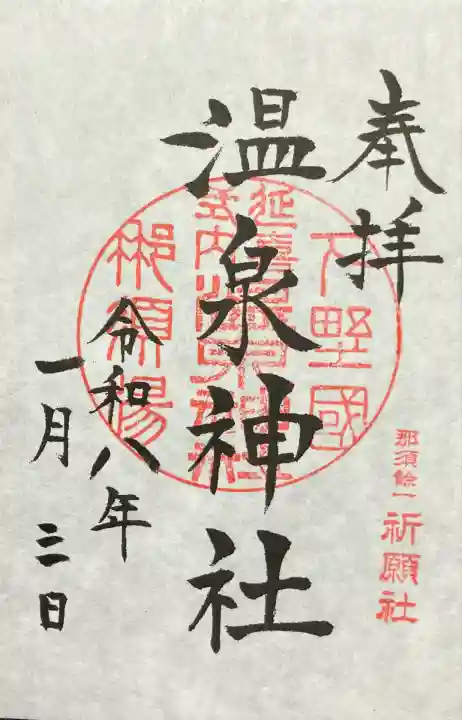 奉拝
下野國
延喜式内
温泉神社
那須湯
令和八年
一月三日
那須餘一
祈願社